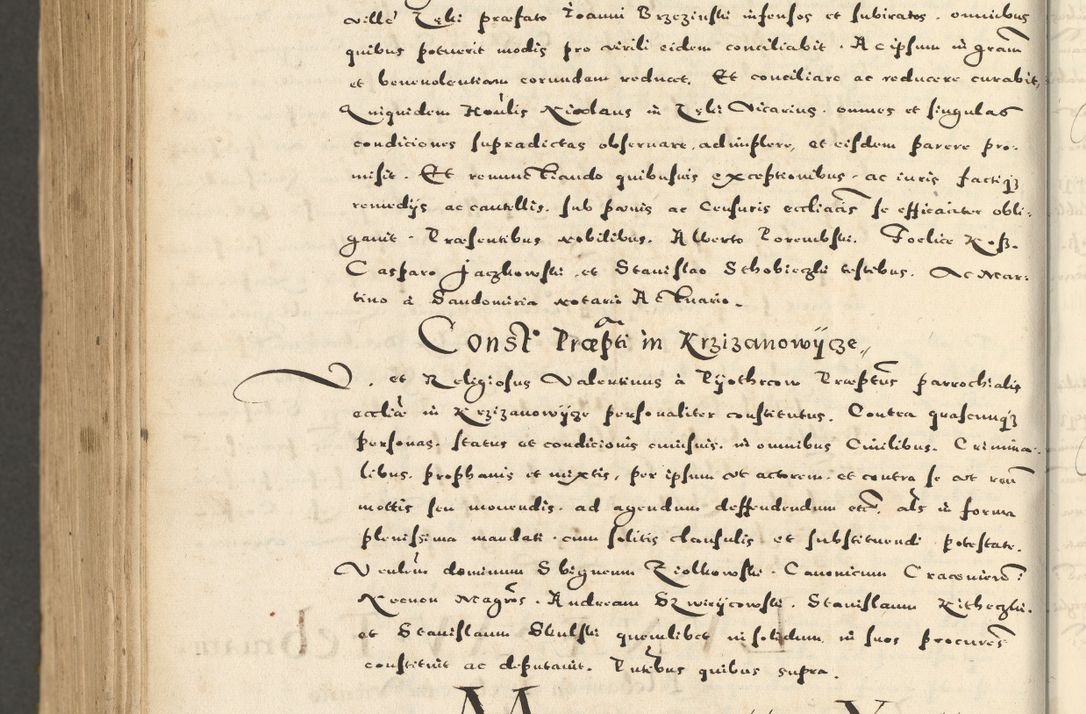 villę Zęlii præfato Ioanni Brzezinski infensos et subiratos. omnibus
quibus potuerit modis pro virili eidem conciliabit. Ac ipsum in gram
et beneuolentiam eorundem reducet. Et conciliare ac reducere curabit,
Quiquidem Honlis Nicolaus in Zęlii Vicarius. omnes et singulas
condiciones supradictas obseruare, adimplere, et eisdem parere pro-
misit. Et renunctiando quibusuis exceptionibus. ac iuris factiq3
remedijs ac cautellis. sub pœnis ac Censuris eccliacis se efficaciter obli-
gauit. Præsentibus nobilibus. Alberto Porembski. Foelice Koß.
Casparo Jaczkowski et Stanislao Schobieczki testibus. Ac Mar-
tino à Sandomiria notario Actuario.
Const. Præpti in Krzizanowÿcze
V. et Religiosus Valentinus à Pÿothrcow Præptus parrochialis
eccliæ in Krzizanowÿcze personaliter constitutus. Contra quascunq3
personas. status et condicionis cuiusuis. in omnibus Ciuilibus. Crimina-
libus. prophanis et mixtis, per ipsum vt actorem. et contra se vt reum
mottis seu mouendis. ad agendum deffendendum etc. als in forma
plenissima mandati. cum solitis clausulis et substituendi potestate.
Venlem dominum Sbigneum Ziolkowski. Canonicum Cracouien:
Necnon Magros. Andream Szwirÿcowski. Stanislaum
et Stanislaum quemlibet in solidum, in suos procures
constituit ac deputauit. Pntibus quibus supra.